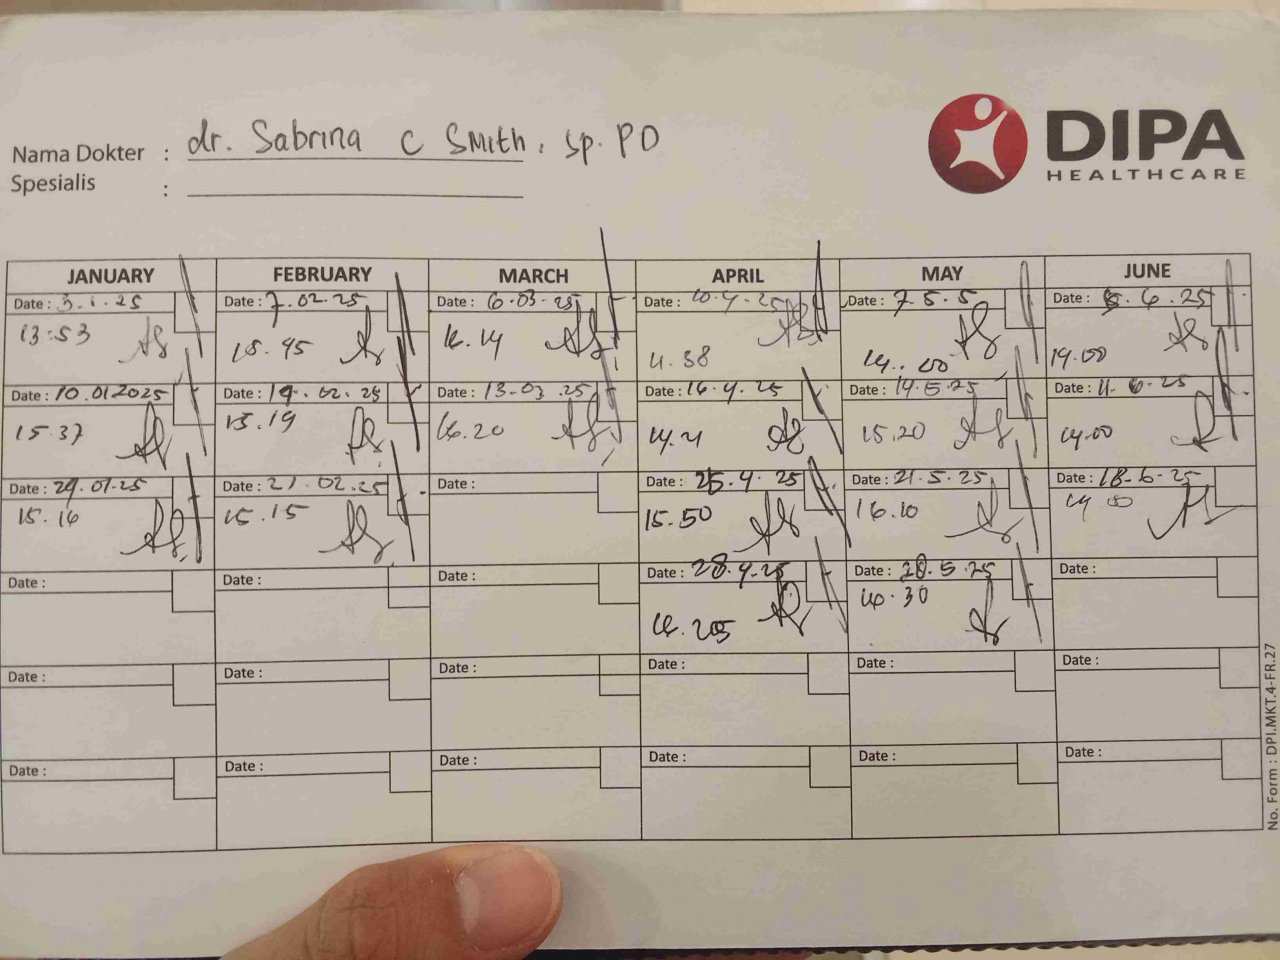 DIPA
HEALTHCARE
Nama Dokter : dr. Sabrina C Smith, Sp. PD
Spesialis :
JANUARY FEBRUARY MARCH APRIL MAY JUNE
Date : 3.1.25 Date : 7.02.25 Date : 6.03.25 Date : 10.4.25 Date : 7.5.5 Date : 6.25
13:53 15.45 16.14 11.38 14.. 00 14.00
Date : 10.01.2025 Date : 14.02.25 Date : 13-03.25 Date : 16.4.25 Date : 14.5.25 Date : 11-6-25
15.37 15.19 16.20 14.21 15.20 14.00
Date : 24.01.25 Date : 21.02.25 Date : Date : 25.4.25 Date : 21.5.25 Date : 18-6-25
15.16 15.15 15.50 16.10 14 00
Date : Date : Date : Date : 28.4.25 Date : 28.5.25 Date :
16.30
Date : Date : Date : Date : Date : Date :
Date : Date : Date : Date : Date : Date :
No. Form : DPI.MKT.4-FR.27